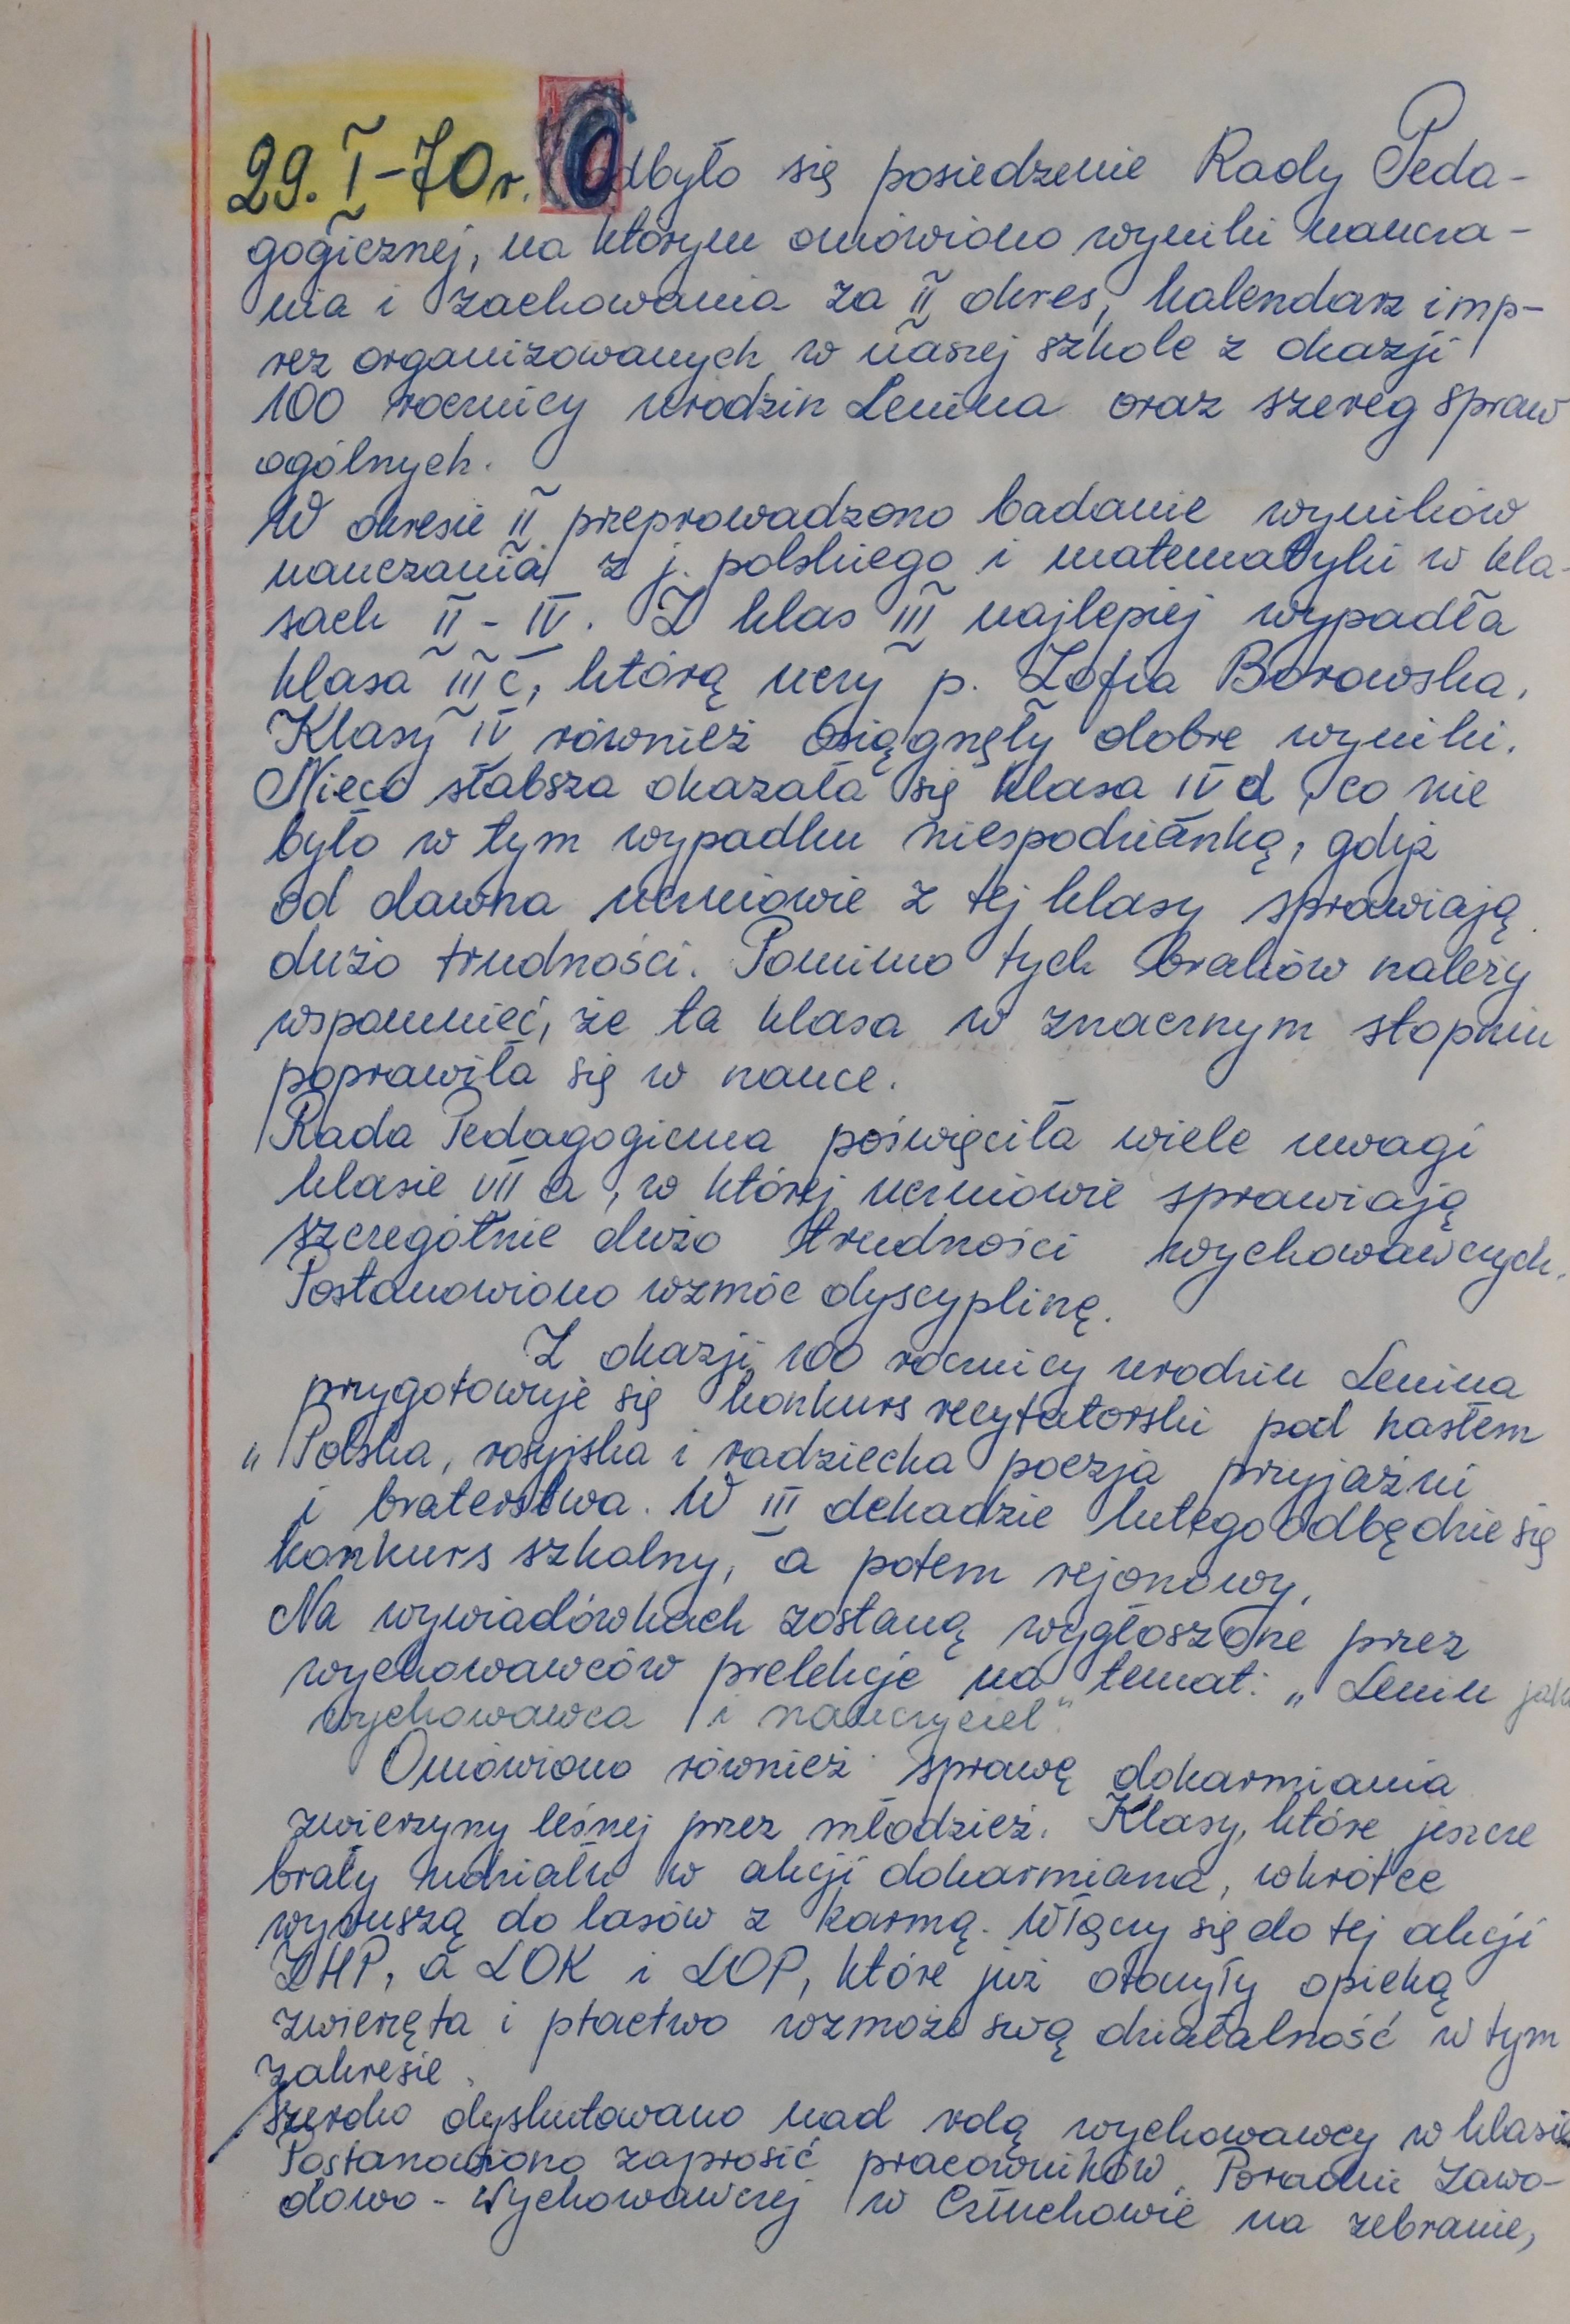 29. I-70 r. Odbyło się posiedzenie Rady Peda-
gogicznej, na którym omówiono wyniki naucza-
nia i zachowania za II okres, kalendarz imp-
rez organizowanych w naszej szkole z okazji
100 rocznicy urodzin Lenina oraz szereg spraw
ogólnych.
W okresie II przeprowadzono badanie wyników
nauczania z j. polskiego i matematyki w kla-
sach II - IV. Z klas III najlepiej wypadła
klasa III c, którą uczy p. Zofia Borowska.
Klasy IV również osiągnęły dobre wyniki.
Nieco słabsza okazała się klasa IV d, co nie
było w tym wypadku niespodzianką, gdyż
od dawna uczniowie z tej klasy sprawiają
dużo trudności. Pomimo tych braków należy
wspomnieć, że ta klasa w znacznym stopniu
poprawiła się w nauce.
Rada Pedagogiczna poświęciła wiele uwagi
klasie VII a, w której uczniowie sprawiają
szczególnie dużo trudności wychowawczych.
Postanowiono wzmóc dyscyplinę.
Z okazji 100 rocznicy urodzin Lenina
przygotowuje się konkurs recytatorski pod hasłem
„Polska, rosyjska i radziecka poezja przyjaźni
i braterstwa. W III dekadzie lutego odbędzie się
konkurs szkolny, a potem rejonowy.
Na wywiadówkach zostaną wygłoszone przez
wychowawców prelekcje na temat: „Lenin jako
wychowawca i nauczyciel”.
Omówiono również sprawę dokarmiania
zwierzyny leśnej przez młodzież. Klasy, które jeszcze
brały udziału w akcji dokarmiana, wkrótce
wyruszą do lasów z karmą. Włączy się do tej akcji
ZHP, a LOK i LOP, które już otoczyły opieką
zwierzęta i ptactwo wzmoże swą działalność w tym
zakresie.
Szeroko dyskutowano nad rolą wychowawcy w klasie
Postanowiono zaprosić pracowników Poradni Zawo-
dowo - Wychowawczej w Człuchowie na zebranie,